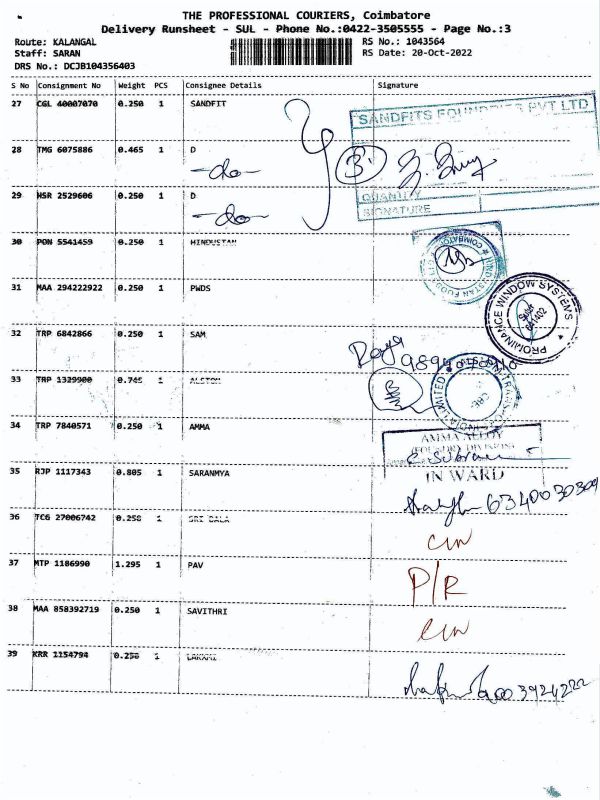 THE PROFESSIONAL COURIERS, Coimbatore
Delivery Runsheet - SUL - Phone No.:0422-3505555 - Page No.:3
Route: KALANGAL RS No.: 1043564
Staff: SARAN RS Date: 20-Oct-2022
DRS No.: DCJB104356403
S No Consignment No Weight PCS Consignee Details Signature
27 CGL 40007070 0.250 1 SANDFIT
SANDFITS FOUNDRIES PVT LTD
28 TMG 6075886 0.465 1 D
-do-
29 HSR 2529606 0.250 1 D
-do-
QUANTITY
SIGNATURE
30 PON 5541459 0.250 1 HINDUSTAN
31 MAA 294222922 0.250 1 PWDS
PROMINANCE WINDOW SYSTEMS
641402
32 TRP 6842866 0.250 1 SAM
33 TRP 1329900 0.745 1 ALSTOM
34 TRP 7840571 0.250 1 AMMA
AMMA ALLOY
(FOUNDRY DIVISION)
IN WARD
35 RJP 1117343 0.805 1 SARANMYA
36 TCG 27006742 0.250 1 SRI BALA
37 MTP 1186990 1.295 1 PAV
P/R
38 MAA 858392719 0.250 1 SAVITHRI
39 KRR 1154794 0.250 1 LAKXMI